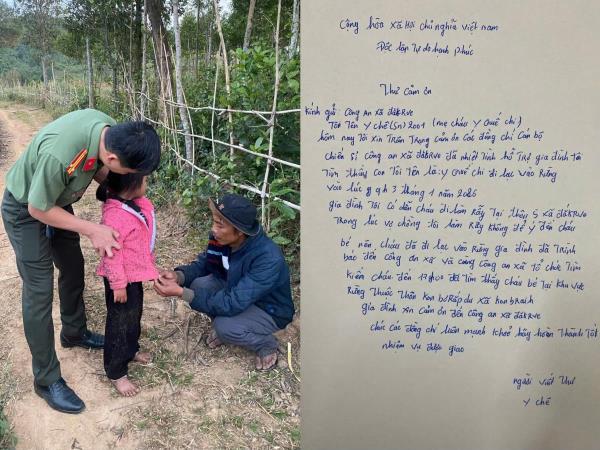 Cộng hòa xã Hội chủ nghĩa việt nam
Độc lập Tự do hạnh phúc
Thư cảm ơn
Kính gửi: Công an xã đăkRve
Tôi Tên Y chế (Sn) 2001 (mẹ cháu Y Quế chi)
hôm nay Tôi xin Trân Trọng cảm ơn các đồng chí cán bộ
chiến sĩ công an xã đăkRve đã nhiệt tình hỗ Trợ gia đình tôi
Tìm thấy con Tôi Tên là: Y Quế chi đi lạc vào Rừng
vào lúc 9 giờ 3 Tháng 1 năm 2026
gia đình Tôi có dẫn cháu đi làm Rẫy Tại thôn 5 xã đăkRve
Trong lúc vợ chồng tôi làm Rẫy không để ý đến cháu
bé nên cháu đã đi lạc vào Rừng gia đình đã Trình
báo đến công an xã và cùng công an xã Tổ chức Tìm
kiếm cháu đến 17h00 đã Tìm thấy cháu Tại khu vực
Rừng Thuộc Thôn kon bơRáp du xã kon braih
gia đình xin cảm ơn đến công an xã đăkRve
chúc các đồng chí luôn mạnh khoẻ hãy hoàn Thành Tốt
nhiệm vụ được giao
người viết Thư
Y chế